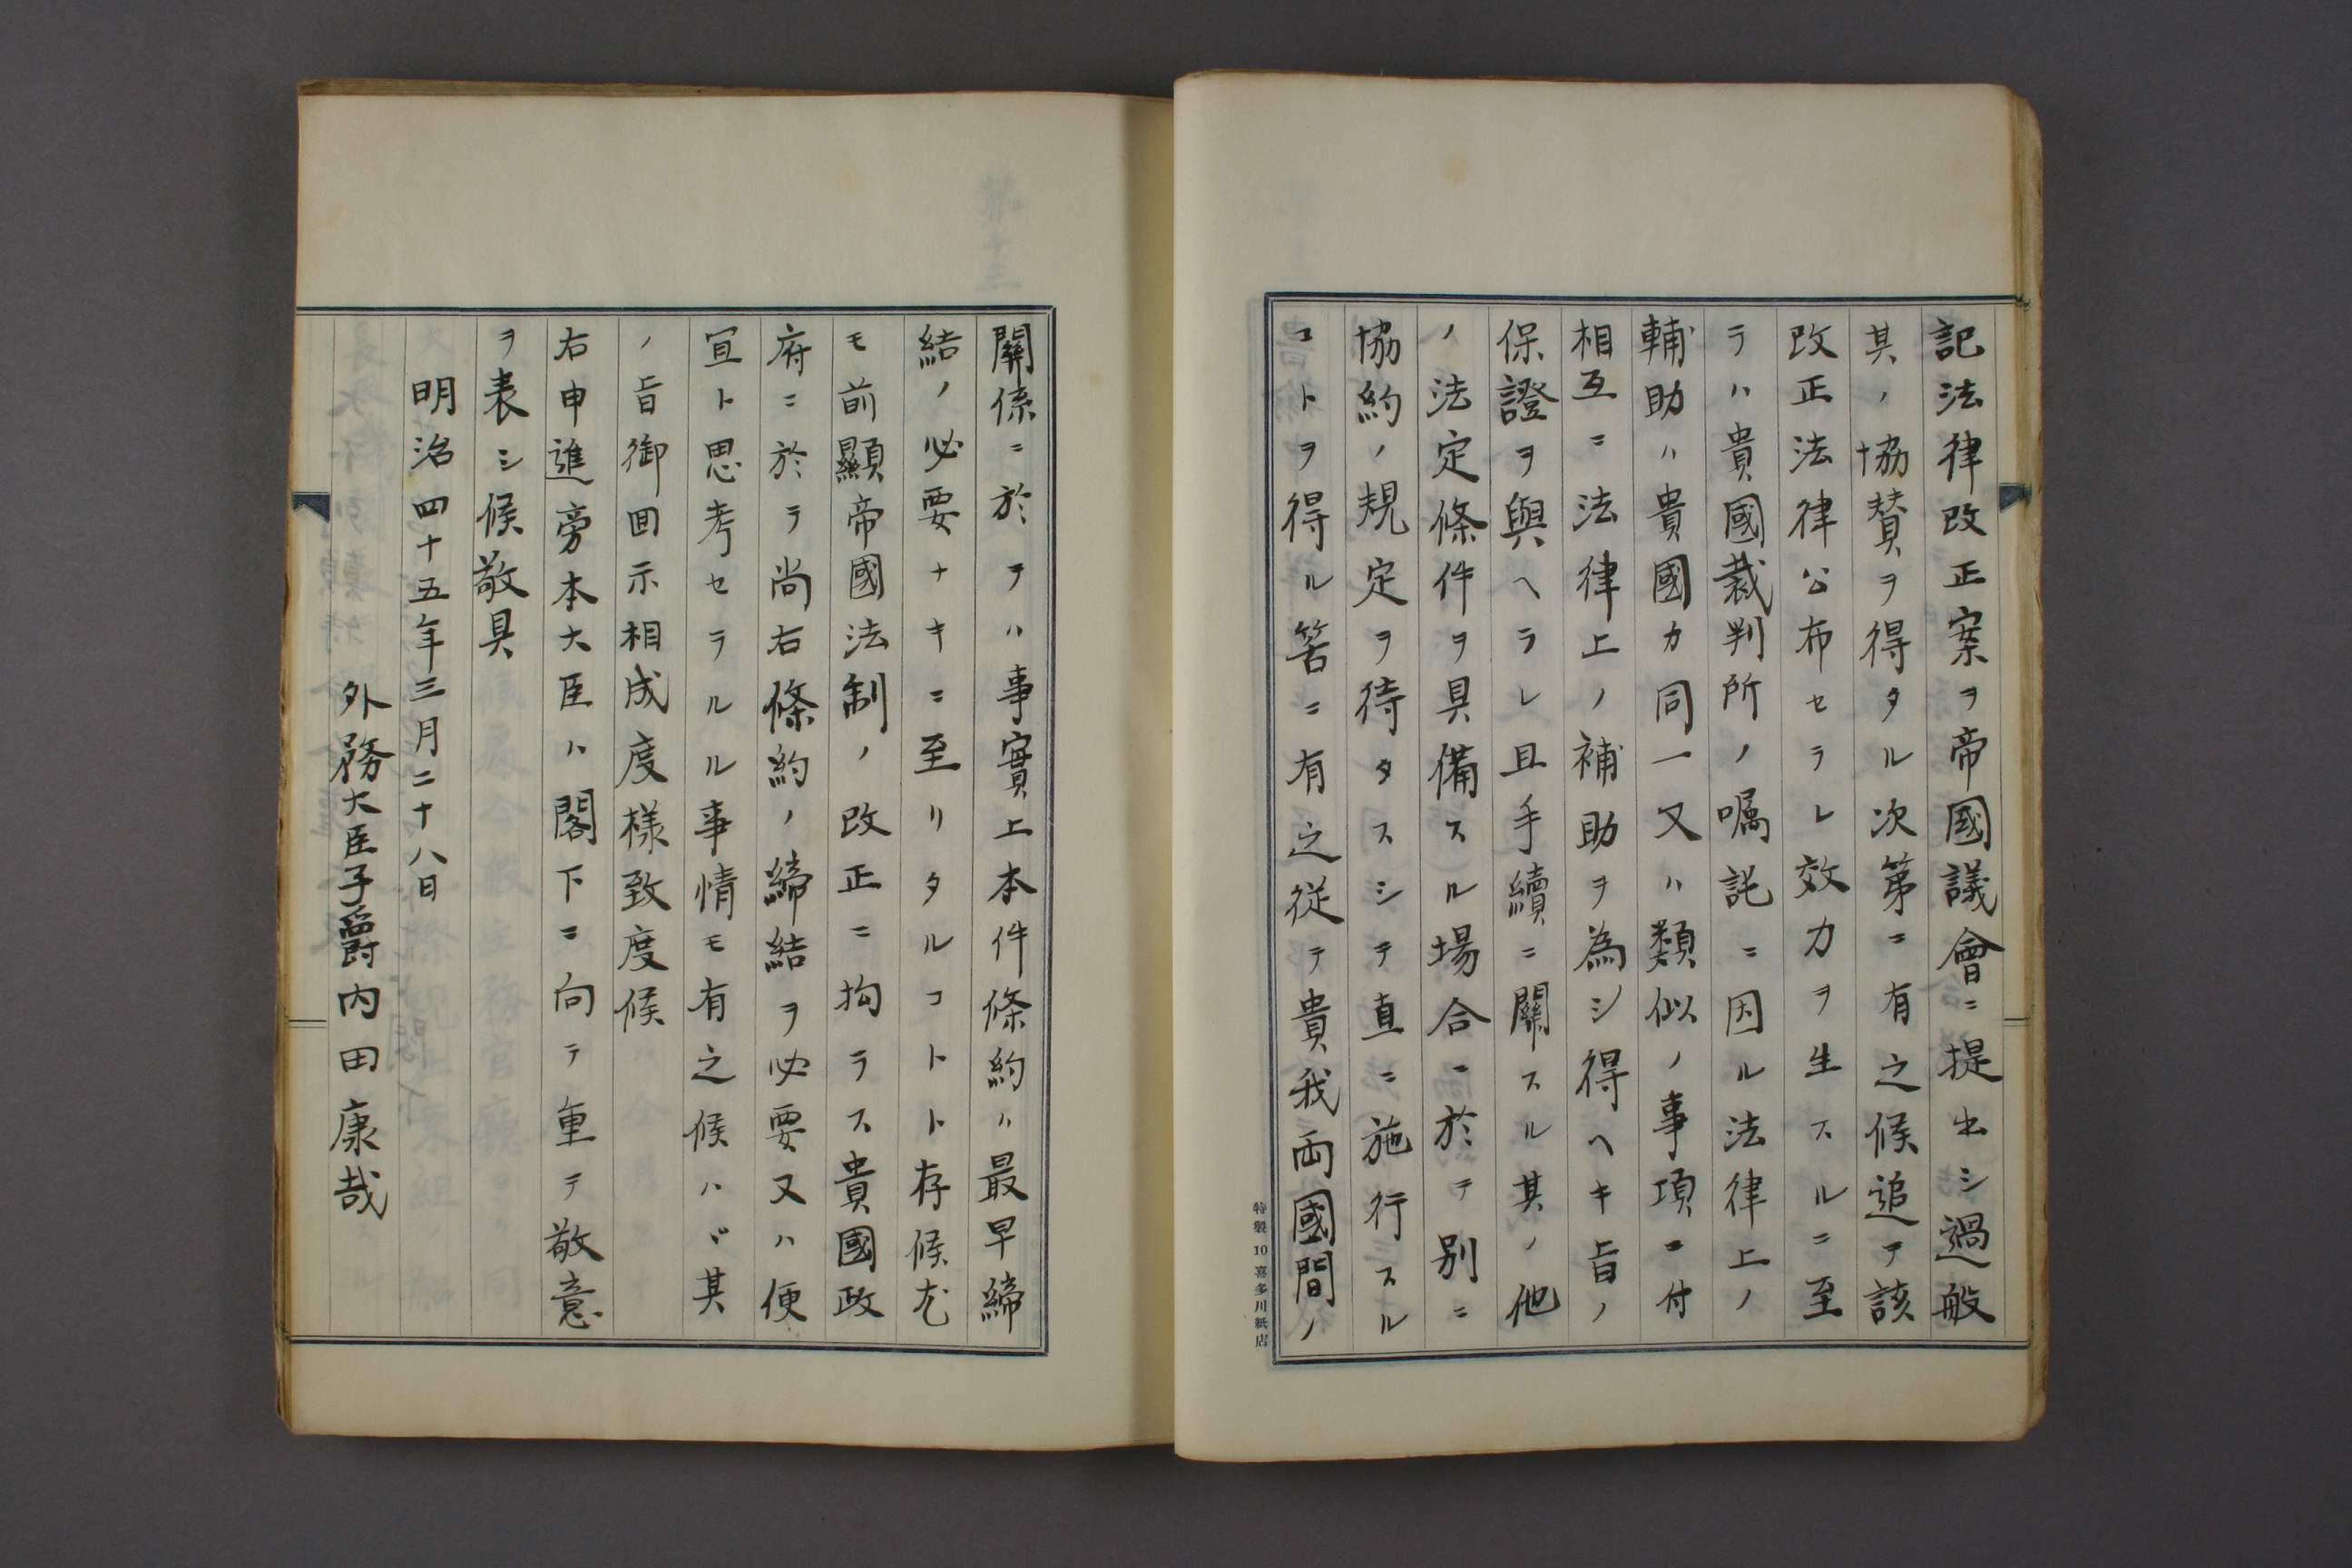 記法律改正案ヲ帝國議會ニ提出シ過般
其ノ協賛ヲ得タル次第ニ有之候追テ該
改正法律公布セラレ效力ヲ生スルニ至
ラハ貴國裁判所ノ嘱託ニ因ル法律上ノ
輔助ハ貴國カ同一又ハ類似ノ事項ニ付
相互ニ法律上ノ補助ヲ為シ得ヘキ旨ノ
保證ヲ與ヘラレ且手續ニ關スル其ノ他
ノ法定條件ヲ具備スル場合ニ於テ別ニ
協約ノ規定ヲ待タスシテ直ニ施行スル
コトヲ得ル筈ニ有之従テ貴我両國間ノ
特製10喜多川紙店
關係ニ於テハ事實上本件條約ハ最早締
結ノ必要ナキニ至リタルコトト存候尤
モ前顯帝國法制ノ改正ニ拘ラス貴國政
府ニ於テ尚右條約ノ締結ヲ必要又ハ便
宜ト思考セラルル事情モ有之候ハヾ其
ノ旨御囬示相成度様致度候
右申進旁本大臣ハ閣下ニ向テ重テ敬意
ヲ表シ候敬具
明治四十五年三月二十八日
外務大臣子爵内田康哉